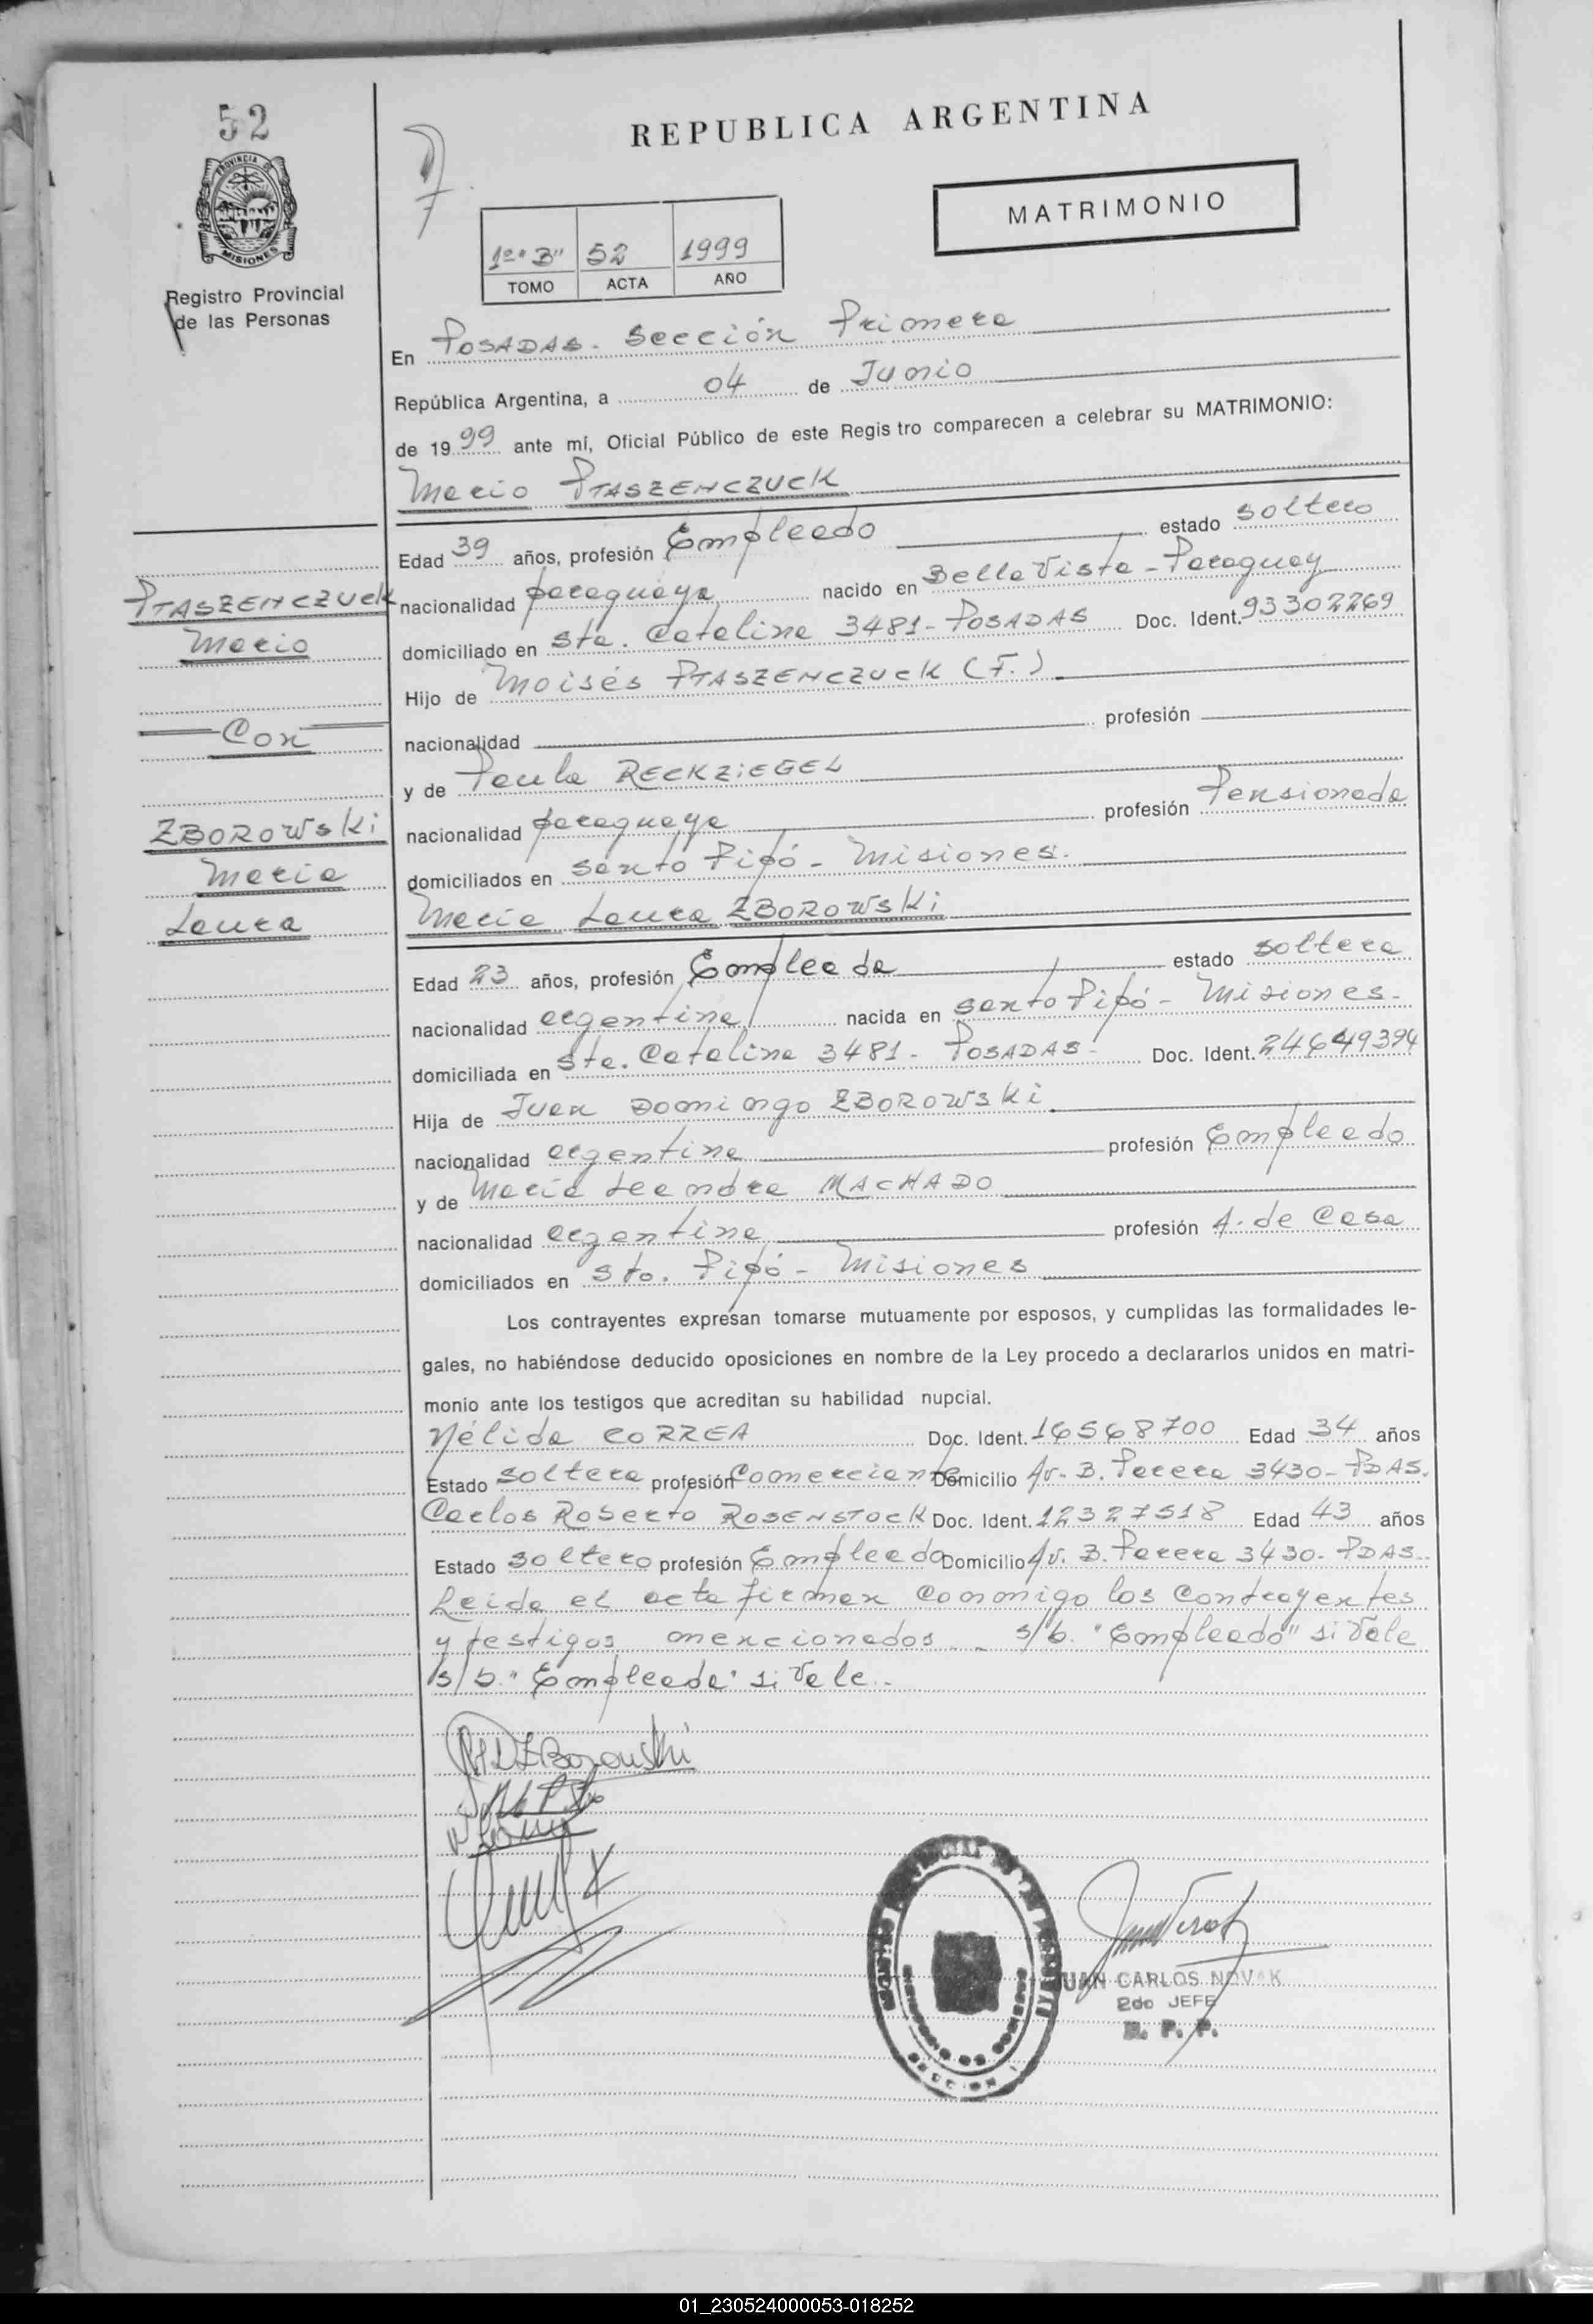 52
PROVINCIA DE
MISIONES
Registro Provincial
de las Personas
REPUBLICA ARGENTINA
MATRIMONIO
1º "B" 52 1999
TOMO ACTA AÑO
En POSADAS - Sección Primera
República Argentina, a 04 de Junio
de 19 99 ante mí, Oficial Público de este Regis tro comparecen a celebrar su MATRIMONIO:
Mario PTASZENCZUCK
Edad 39 años, profesión Empleado estado soltero
nacionalidad paraguaya nacido en Bella Vista - Paraguay
domiciliado en Sta. Catalina 3481 - POSADAS Doc. Ident. 93302269
Hijo de Moisés PTASZENCZUCK (F.)
nacionalidad profesión
y de Paula RECKZIEGEL
nacionalidad paraguaya profesión Pensionada
domiciliados en Santo Pipó - Misiones.
María Laura ZBOROWSKI
Edad 23 años, profesión Empleada estado soltera
nacionalidad argentina nacida en Santo Pipó - Misiones.
domiciliada en Sta. Catalina 3481 - POSADAS - Doc. Ident. 24649394
Hija de Juan Domingo ZBOROWSKI
nacionalidad argentina profesión Empleado
y de María Leandra MACHADO
nacionalidad argentina profesión A. de Casa
domiciliados en Sto. Pipó - Misiones
PTASZENCZUCK
Mario
Con
ZBOROWSKI
María
Laura
Los contrayentes expresan tomarse mutuamente por esposos, y cumplidas las formalidades le-
gales, no habiéndose deducido oposiciones en nombre de la Ley procedo a declararlos unidos en matri-
monio ante los testigos que acreditan su habilidad nupcial.
Nélida CORREA Doc. Ident. 16568700 Edad 34 años
Estado soltera profesión Comerciante Domicilio Av. B. Perera 3430 - PDAS.
Carlos Roberto ROSENSTOCK Doc. Ident. 12327518 Edad 43 años
Estado soltero profesión Empleado Domicilio Av. B. Perera 3430 - PDAS.
Leida el acta firman conmigo los contrayentes
y testigos mencionados. - s/b. "Empleado" si Vale
s/b. "Empleada" si Vale. -
Zborowski
JUAN CARLOS NOVAK
2do JEFE
R. P. P.
SECCION 1
01_230524000053-018252